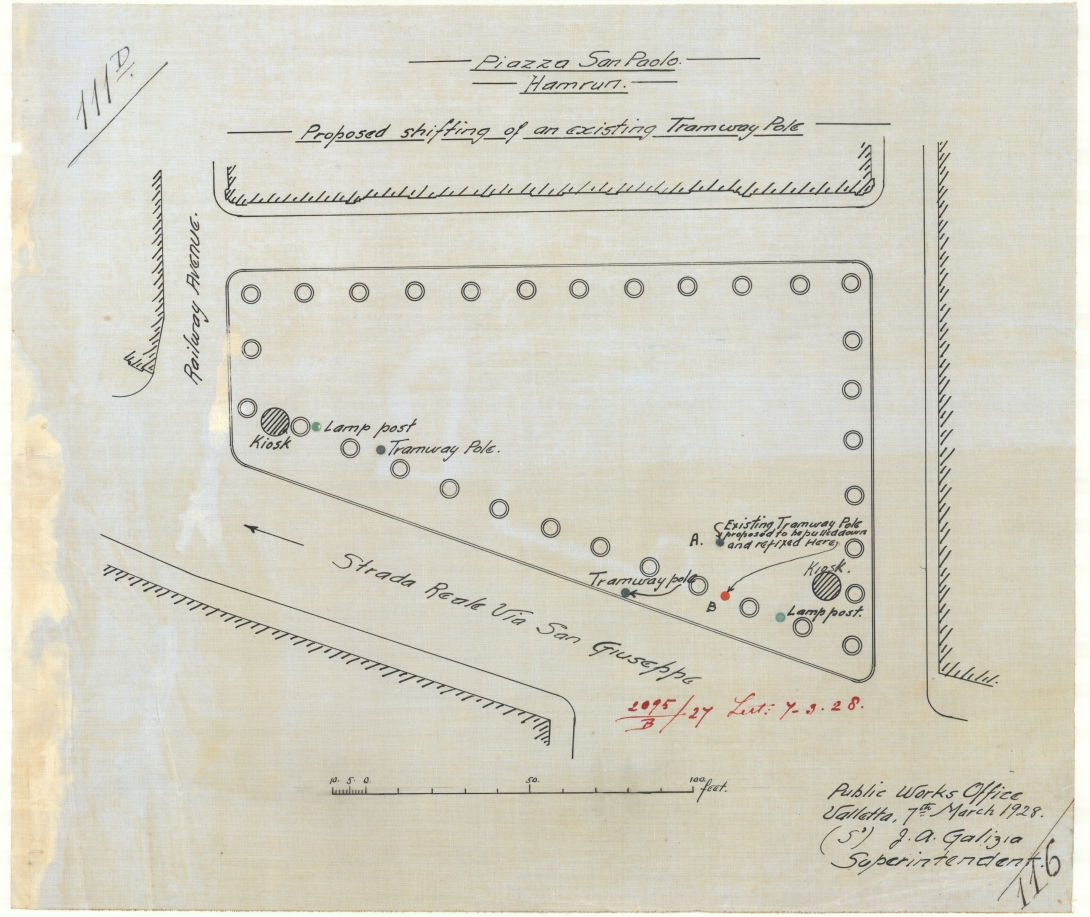 111D.
Piazza San Paolo.
Hamrun.
Proposed shifting of an existing Tramway Pole
Railway Avenue.
Lamp post
Kiosk
Tramway Pole.
A.
Existing Tramway Pole
proposed to be pulled down
and refixed Here,
Kiosk.
Tramway pole
B
Lamp post.
Strada Reale Via San Giuseppe
2095/B/27 Lett: 7-3-28.
10. 5. 0. 50. 100. feet.
Public Works Office
Valletta, 7th March 1928.
(Sd) J. A. Galizia
Superintendent.
116